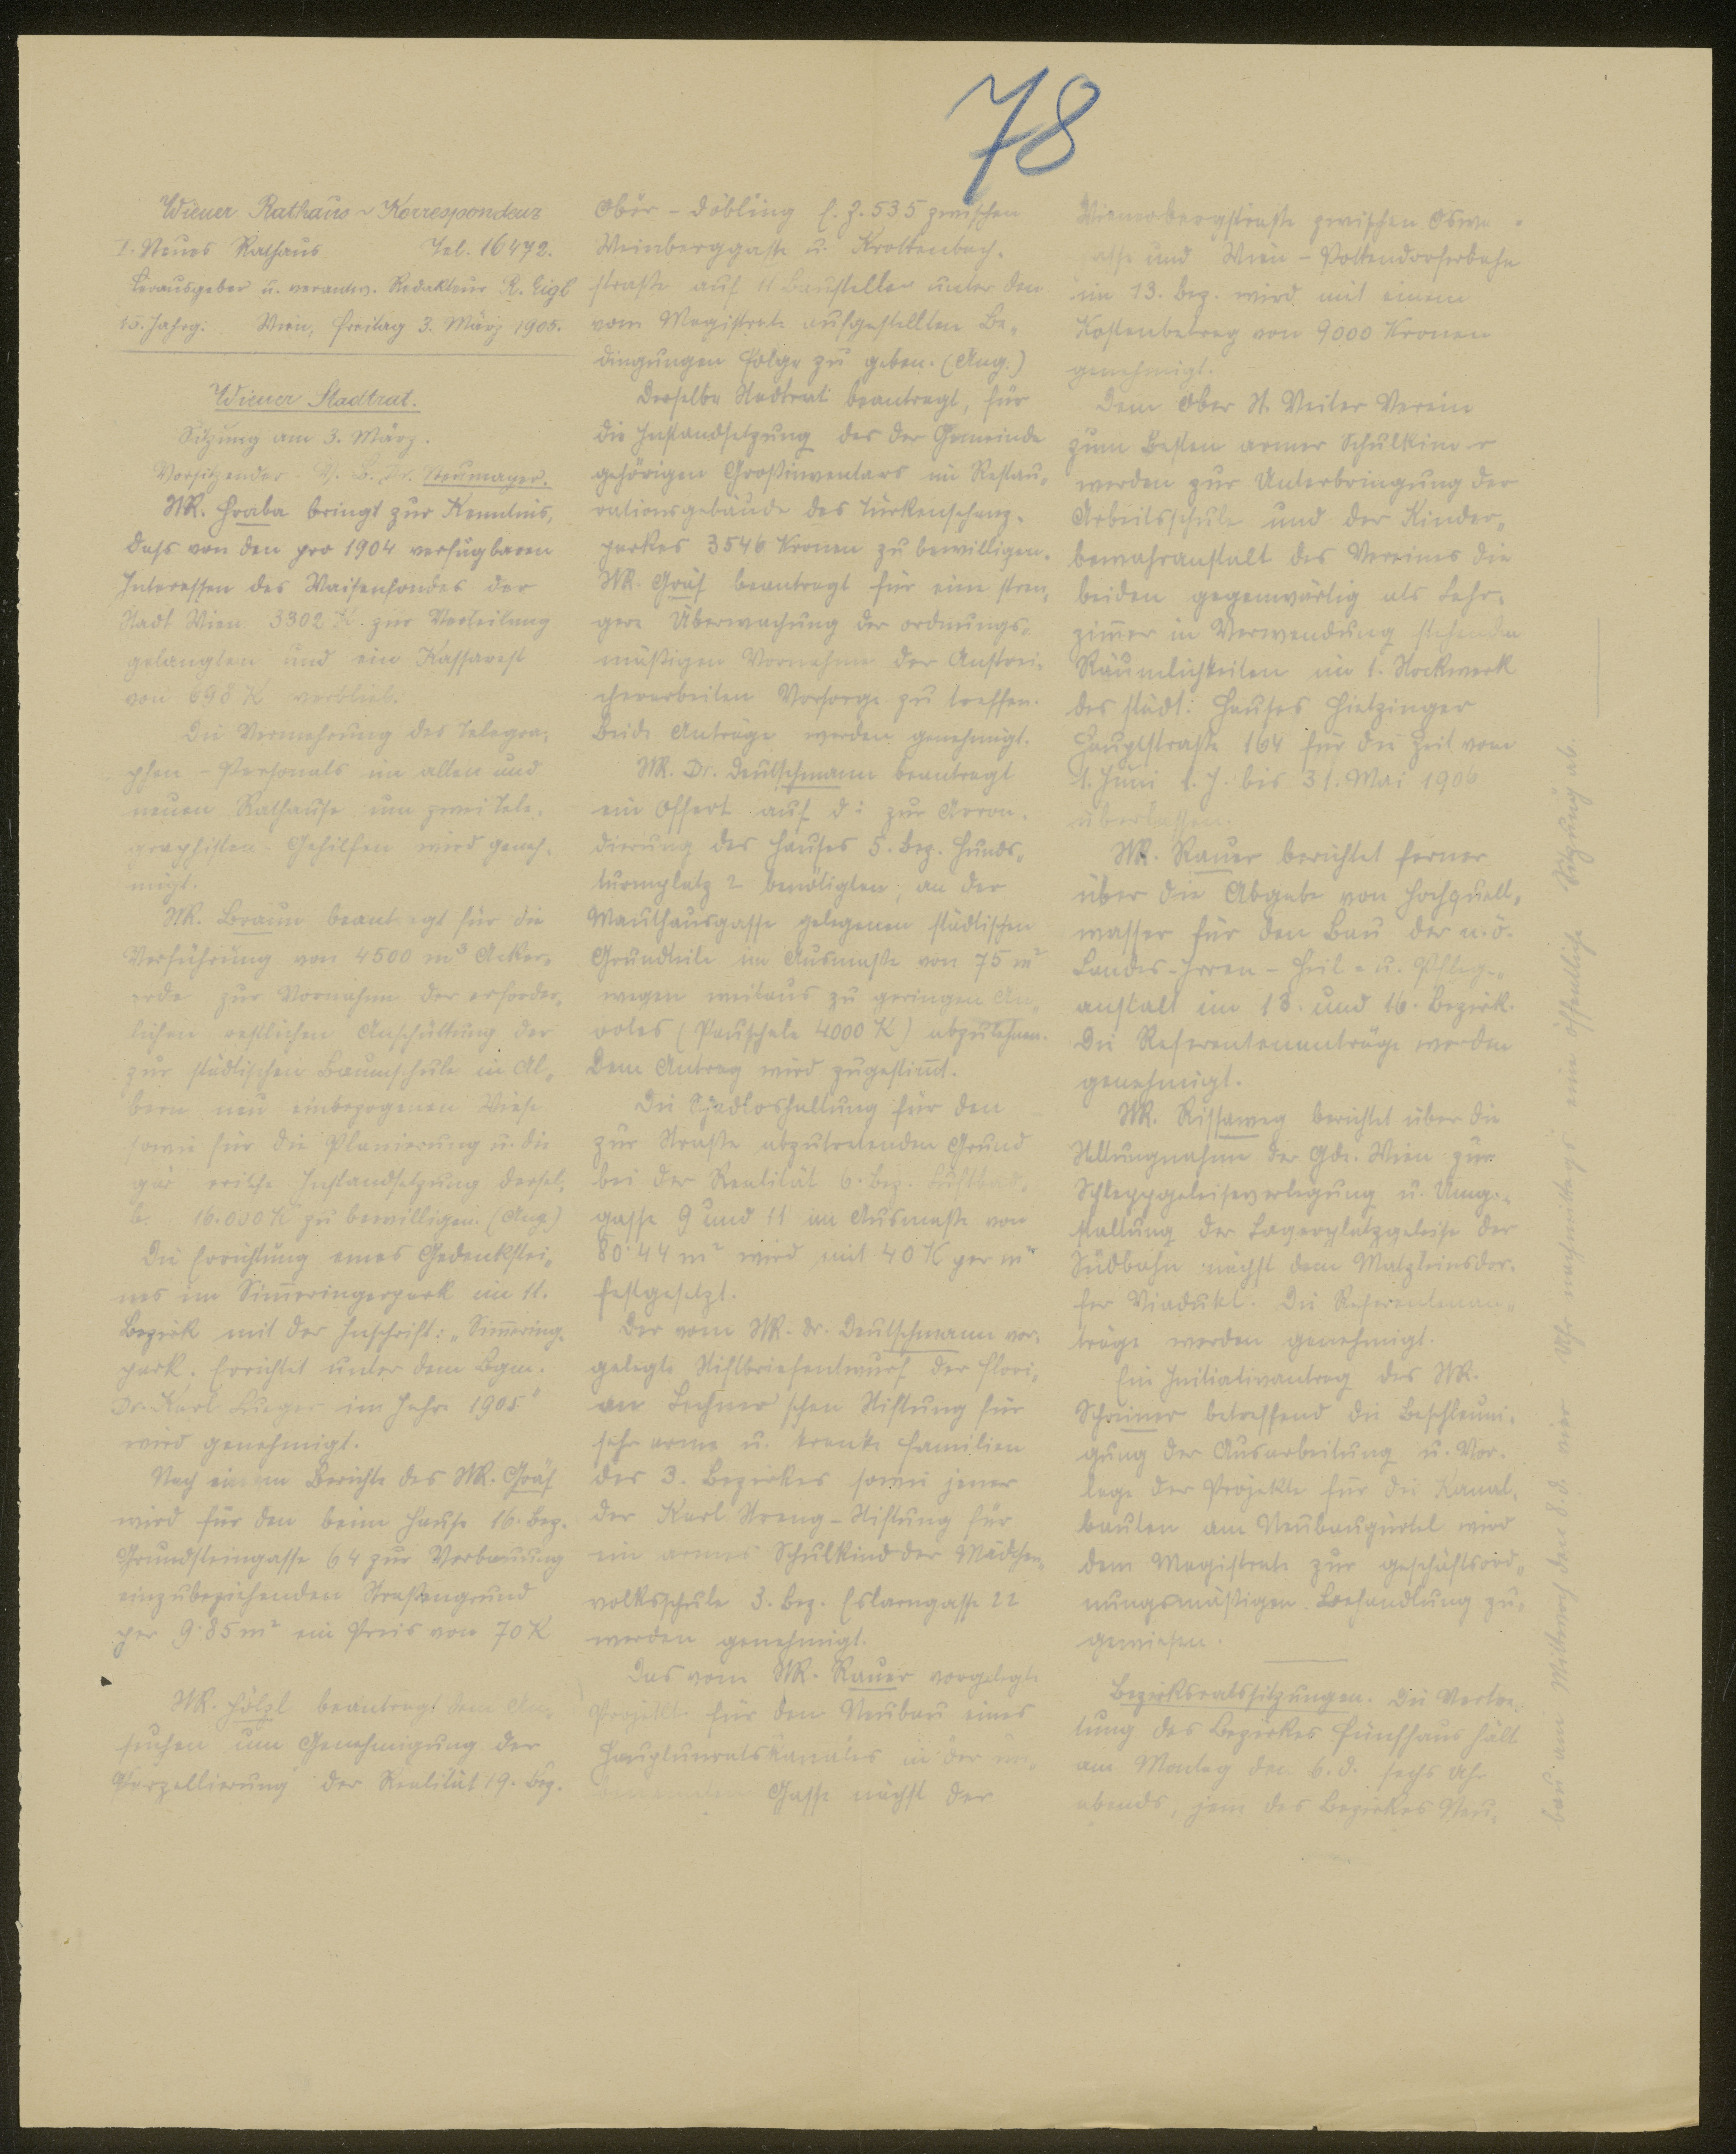 78
Wiener Rathaus-Korrespondenz
I. Neues Rathaus Tel. 16472.
Herausgeber u. verantw. Redakteur R. Eigl
15. Jahrg. Wien, Freitag 3. März 1905.
Wiener Stadtrat.
Sitzung am 3. März.
Vorsitzender V. B. Dr. Neumayer.
StR. Hraba bringt zur Kenntnis,
daß von den pro 1904 verfügbaren
Interessen des Waisenfondes der
Stadt Wien 3302 K zur Verteilung
gelangten und ein Kassarest
von 698 K verblieb.
Die Vermehrung des Telegra-
phen-Personals im alten und
neuen Rathause um zwei Tele-
graphisten-Gehilfen wird geneh-
migt.
StR. Braun beantragt für die
Verführung von 4500 m³ Acker-
erde zur Vornahme der erforder-
lichen restlichen Anschüttung der
zur städtischen Baumschule in Al-
bern neu einbezogenen Wiese
sowie für die Planierung u. die
Instandsetzung dersel-
b. 16.000 K zu bewilligen. (Ang.)
Die Errichtung eines Gedenkstei-
nes im Sim̄eringerpark im 11.
Bezirk mit der Inschrift: „Sim̄ering-
park. Errichtet unter dem Bgm.
Dr. Karl Lueger im Jahre 1905"
wird genehmigt.
Nach einem Berichte des StR. Gräf
wird für den beim Hause 16. Bez.
Grundsteingasse 64 zur Verbauung
einzubeziehenden Straßengrund
per 9·85 m² ein Preis von 70 K
StR. Hölzl beantragt dem An-
suchen um Genehmigung der
Parzellierung der Realität 19. Bez.
Ober-Döbling E. Z. 535 zwischen
Weinberggasse u. Krottenbach-
straße auf 11 Baustellen unter den
vom Magistrate aufgestellten Be-
dingungen Folge zu geben. (Ang.)
Derselbe Stadtrat beantragt, für
die Instandsetzung des der Gemeinde
gehörigen Großinventars im Restau-
rationsgebäude des Türkenschanz-
parkes 3546 Kronen zu bewilligen.
StR. Gräf beantragt für eine stren-
gere Überwachung der ordnungs-
mäßigen Vornahme der Anstrei-
cherarbeiten Vorsorge zu treffen.
Beide Anträge werden genehmigt.
StR. Dr. Deutschmann beantragt
ein Offert auf die zur Arron-
dierung des Hauses 5. Bez. Hunds-
turmplatz 2 benötigten, an der
Mauthausgasse gelegenen städtischen
Grundteile im Ausmaße von 75 m²
wegen weitaus zu geringen An-
botes (Pauschale 4000 K) abzulehnen.
Dem Antrag wird zugestim̄t.
Die Schadloshaltung für den
zur Straße abzutretenden Grund
bei der Realität 6. Bez. Luftbad-
gasse 9 und 11 im Ausmaße von
80·44 m² wird mit 40 K per m²
festgesetzt.
Der vom StR. Dr. Deutschmann vor-
gelegte Stiftbriefentwurf der Flori-
an Lechner'schen Stiftung für
sehr arme u. kranke Familien
des 3. Bezirkes sowie jener
der Karl Streng-Stiftung für
ein armes Schulkind der Mädchen-
volksschule 3. Bez. Eslarngasse 22
werden genehmigt.
Das vom StR. Rauer vorgelegte
Projekt für den Neubau eines
Hauptunratskanales in der
Gasse nächst der
Wienerbergstraße zwischen
gasse und Wien-Pottendorferbahn
im 13. Bez. wird mit einem
Kostenbetrag von 9000 Kronen
genehmigt.
Dem Ober St. Veiter Verein
zum Besten armer Schulkinder
werden zur Unterbringung der
Arbeitsschule und der Kinder-
bewahranstalt des Vereines die
beiden gegenwärtig als Lehr-
zim̄er in Verwendung stehenden
Räumlichkeiten im 1. Stockwerk
des städt. Hauses Hietzinger
Hauptstraße 164 für die Zeit vom
1. Juni l. J. bis 31. Mai 1906
überlassen.
StR. Rauer berichtet ferner
über die Abgabe von Hochquell-
wasser für den Bau der n. ö.
Landes-Irren-Heil- u. Pfleg-
anstalt im 13. und 16. Bezirk.
Die Referentenanträge werden
genehmigt.
StR. Rissaweg berichtet über die
Stellungnahme der Gde. Wien zur
Schleppgeleiseverlegung u. Umge-
staltung der Lagerplatzgeleise der
Südbahn nächst dem Matzleinsdor-
fer Viadukt. Die Referentenan-
träge werden genehmigt.
Ein Initiativantrag des StR.
Schreiner betreffend die Beschleuni-
gung der Ausarbeitung u. Vor-
lage der Projekte für die Kanal-
bauten am Neubaugürtel wird
dem Magistrate zur geschäftsord-
nungsmäßigen Behandlung zu-
gewiesen.
Bezirksratssitzungen. Die Vertre-
tung des Bezirkes Fünfhaus hält
am Montag den 6. d. sechs Uhr
abends, jene des Bezirkes Neu-
bau am Mittwoch den 8. d. vier Uhr nachmittags eine öffentliche Sitzung ab.